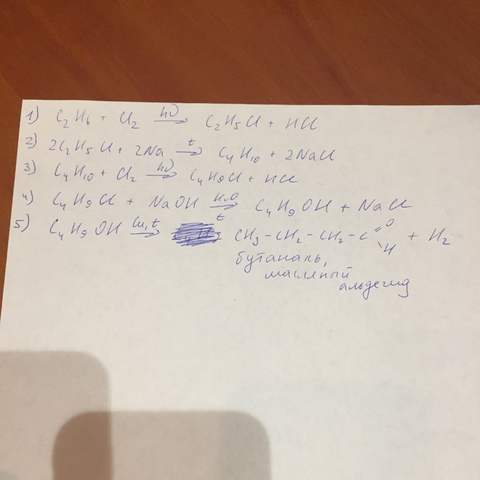 1) C₂H₆ + Cl₂ —hν→ C₂H₅Cl + HCl
2) 2C₂H₅Cl + 2Na —t→ C₄H₁₀ + 2NaCl
3) C₄H₁₀ + Cl₂ —hν→ C₄H₉Cl + HCl
4) C₄H₉Cl + NaOH —H₂O, t→ C₄H₉OH + NaCl
5) C₄H₉OH —Cu, t→ CH₃-CH₂-CH₂-C(=O)-H + H₂
бутаналь,
масляный
альдегид